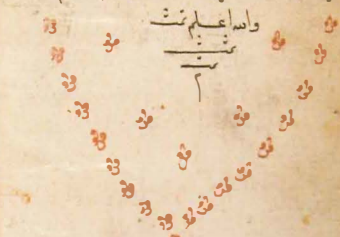 والله اعلم تمت
تمت
تمت
م